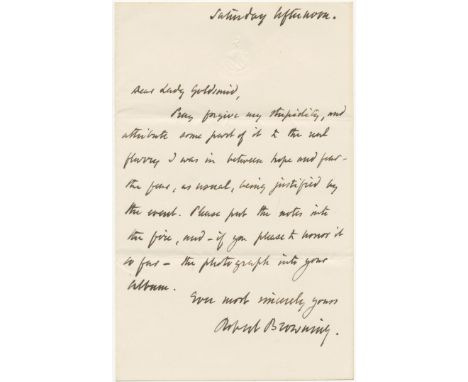 Saturday Afternoon.
Dear Lady Goldsmid,
Pray forgive my stupidity, and
attribute some part of it to the real
flurry I was in between hope and fear -
the fear, as usual, being justified by
the event. Please put the notes into
the fire, and - if you please to honor it
so far - the photograph into your
Album.
Ever most sincerely yours
Robert Browning.